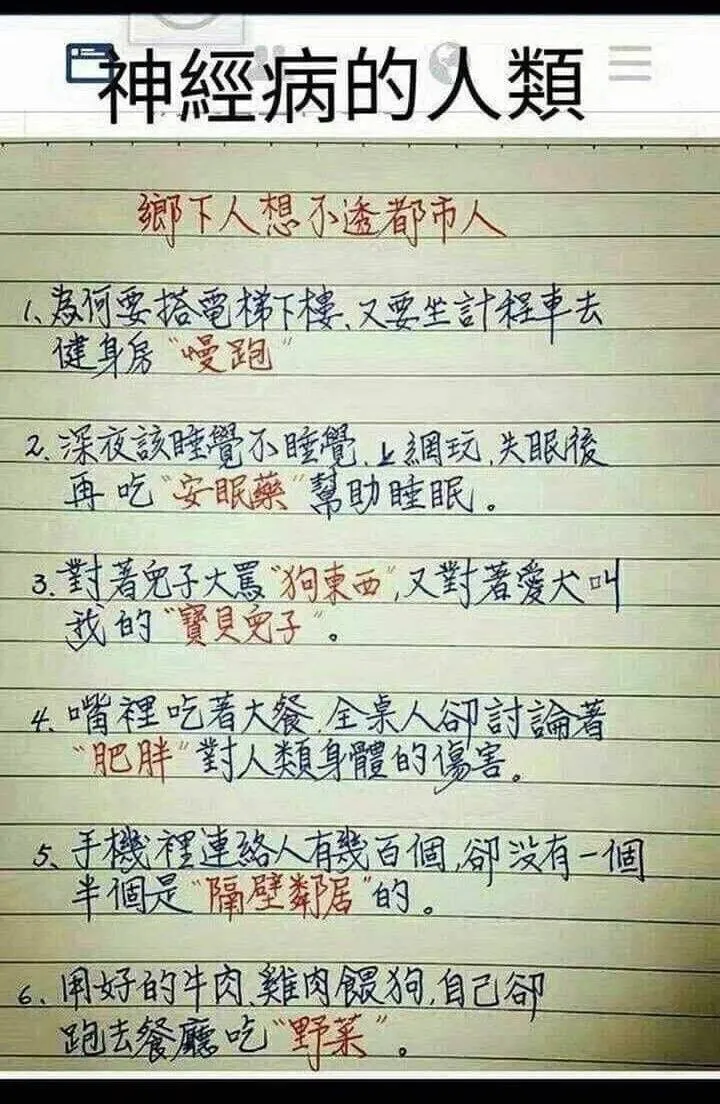 神經病的人類
鄉下人想不透都市人
1、為何要搭電梯下樓、又要坐計程車去
健身房"慢跑"
2、深夜該睡覺不睡覺、上網玩,失眠後
再吃"安眠藥"幫助睡眠。
3、對著兒子大罵"狗東西",又對著愛犬叫
我的"寶貝兒子"。
4、嘴裡吃著大餐,全桌人卻討論著
"肥胖"對人類身體的傷害。
5、手機裡連絡人有幾百個,卻没有一個
半個是"隔壁鄰居"的。
6、用好的牛肉、雞肉餵狗,自己卻
跑去餐廳吃"野菜"。